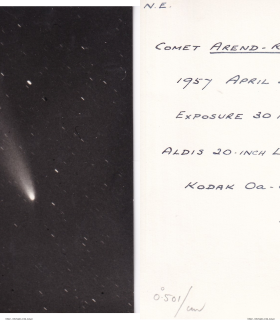 N.E.
COMET AREND-R
1957 APRIL
EXPOSURE 30
ALDIS 20-INCH L
KODAK Oa-
0°.501/